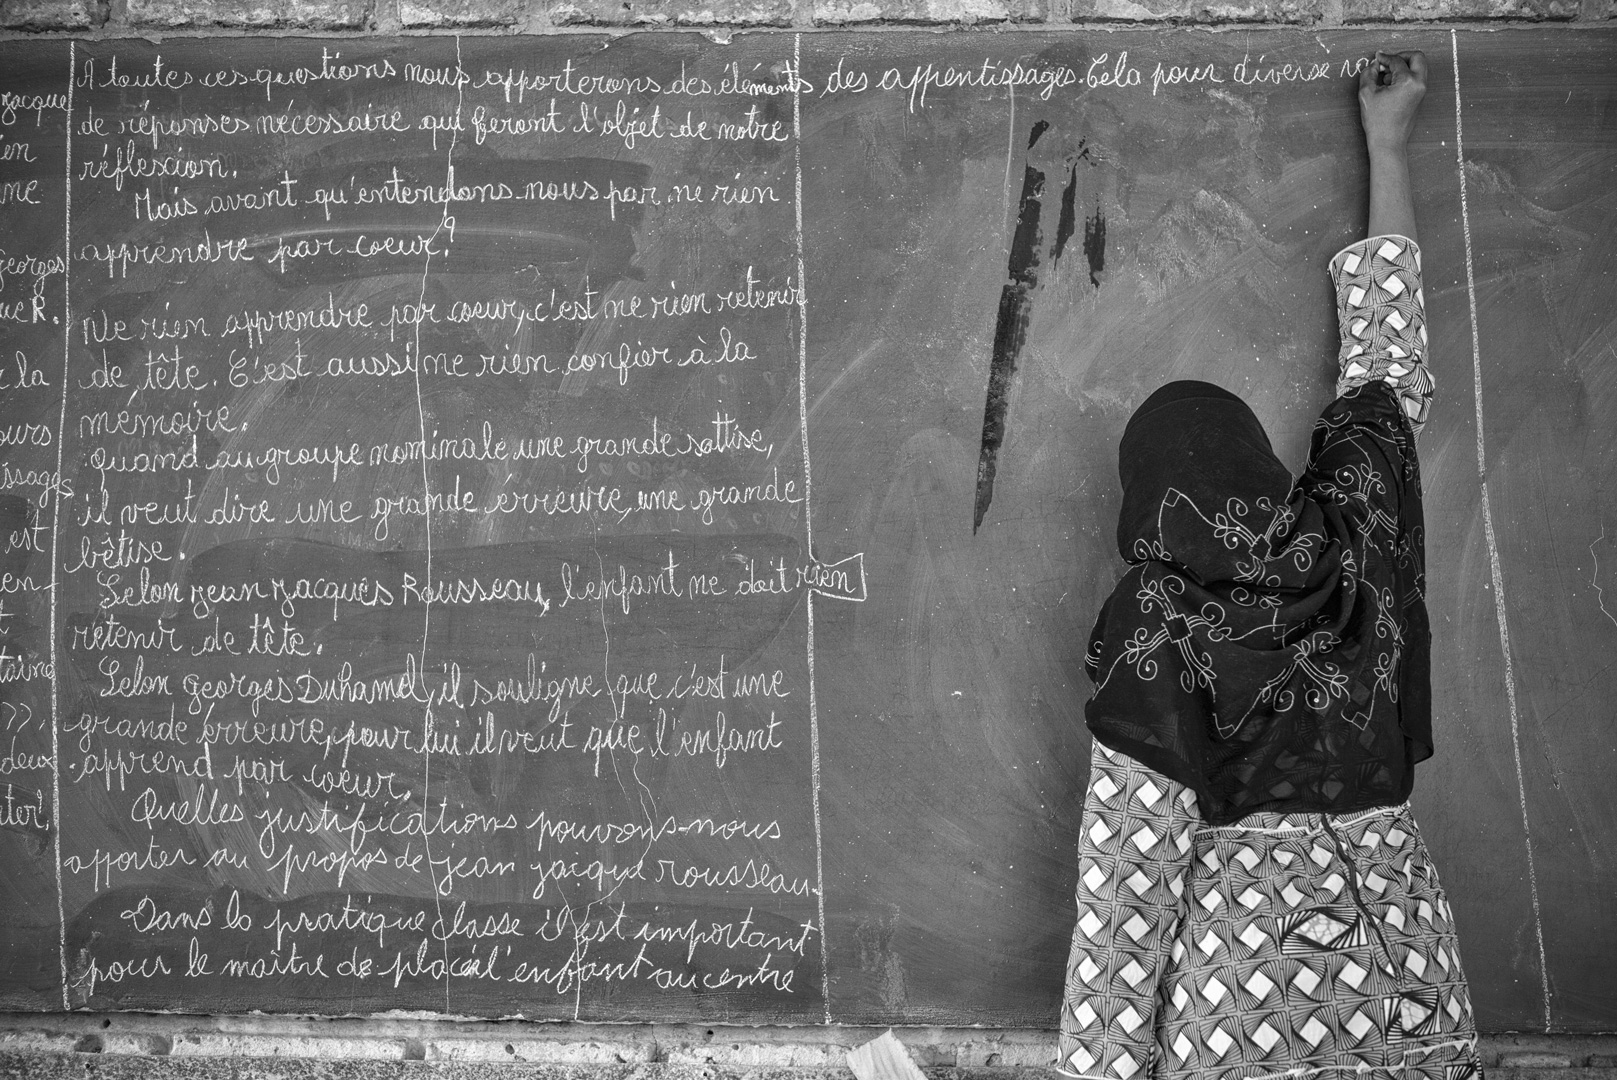 jacque
en
ne
georges
ue R.
la
ours
issages
est
en-
t
taire
>>.
deux
ter!
A toutes ces questions nous apporterons des éléments
de réponses nécessaire qui feront l'objet de notre
réflexion.
Mais avant qu'entendons-nous par ne rien
apprendre par coeur?
Ne rien apprendre par coeur, c'est ne rien retenir
de tête. C'est aussi ne rien confier à la
mémoire.
Quand au groupe nominale une grande sottise,
il veut dire une grande érreure, une grande
bêtise.
Selon jean jacques Rousseau, l'enfant ne doit rien
retenir de tête.
Selon georges Duhamel, il souligne que c'est une
grande érreure, pour lui il veut que l'enfant
apprend par coeur.
Quelles justifications pouvons-nous
apporter au propos de jean jacque rousseau.
Dans la pratique classe il est important
pour le maître de placé l'enfant au centre
des apprentissages. Cela pour diverse ra